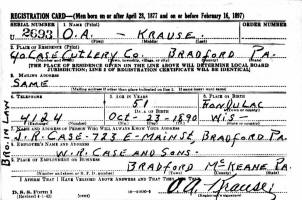 REGISTRATION CARD—(Men born on or after April 28, 1877 and on or before February 16, 1897)
SERIAL NUMBER 1. NAME (Print) ORDER NUMBER
U 2693 O.A. — KRAUSE.
2. PLACE OF RESIDENCE (Print)
% CASE CUTLERY CO. BRADFORD PA.
[THE PLACE OF RESIDENCE GIVEN ON THE LINE ABOVE WILL DETERMINE LOCAL BOARD
JURISDICTION; LINE 2 OF REGISTRATION CERTIFICATE WILL BE IDENTICAL]
3. MAILING ADDRESS
SAME
4. TELEPHONE 5. AGE IN YEARS 6. PLACE OF BIRTH
51 FONDULAC
DATE OF BIRTH
4124 OCT-23-1890 WIS-
7. NAME AND ADDRESS OF PERSON WHO WILL ALWAYS KNOW YOUR ADDRESS
J.R. CASE-723 E-MAIN ST, BRADFORD PA.
8. EMPLOYER'S NAME AND ADDRESS
W.R. CASE AND SONS-
9. PLACE OF EMPLOYMENT OR BUSINESS
BRADFORD McKEANE PA.
I AFFIRM THAT I HAVE VERIFIED ABOVE ANSWERS AND THAT THEY ARE TRUE.
D. S. S. Form 1
O.A. Krause
BRO. IN LAW